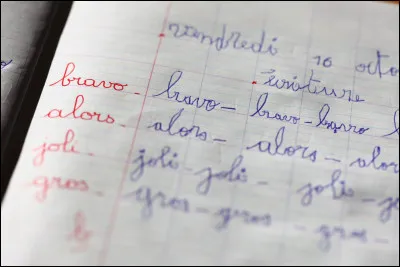 vendredi 10 octo
écriture
bravo - bravo - bravo - barro b
alors - alors - alors - alor
joli - joli - joli - joli - j
gros - gros - gros - gros -